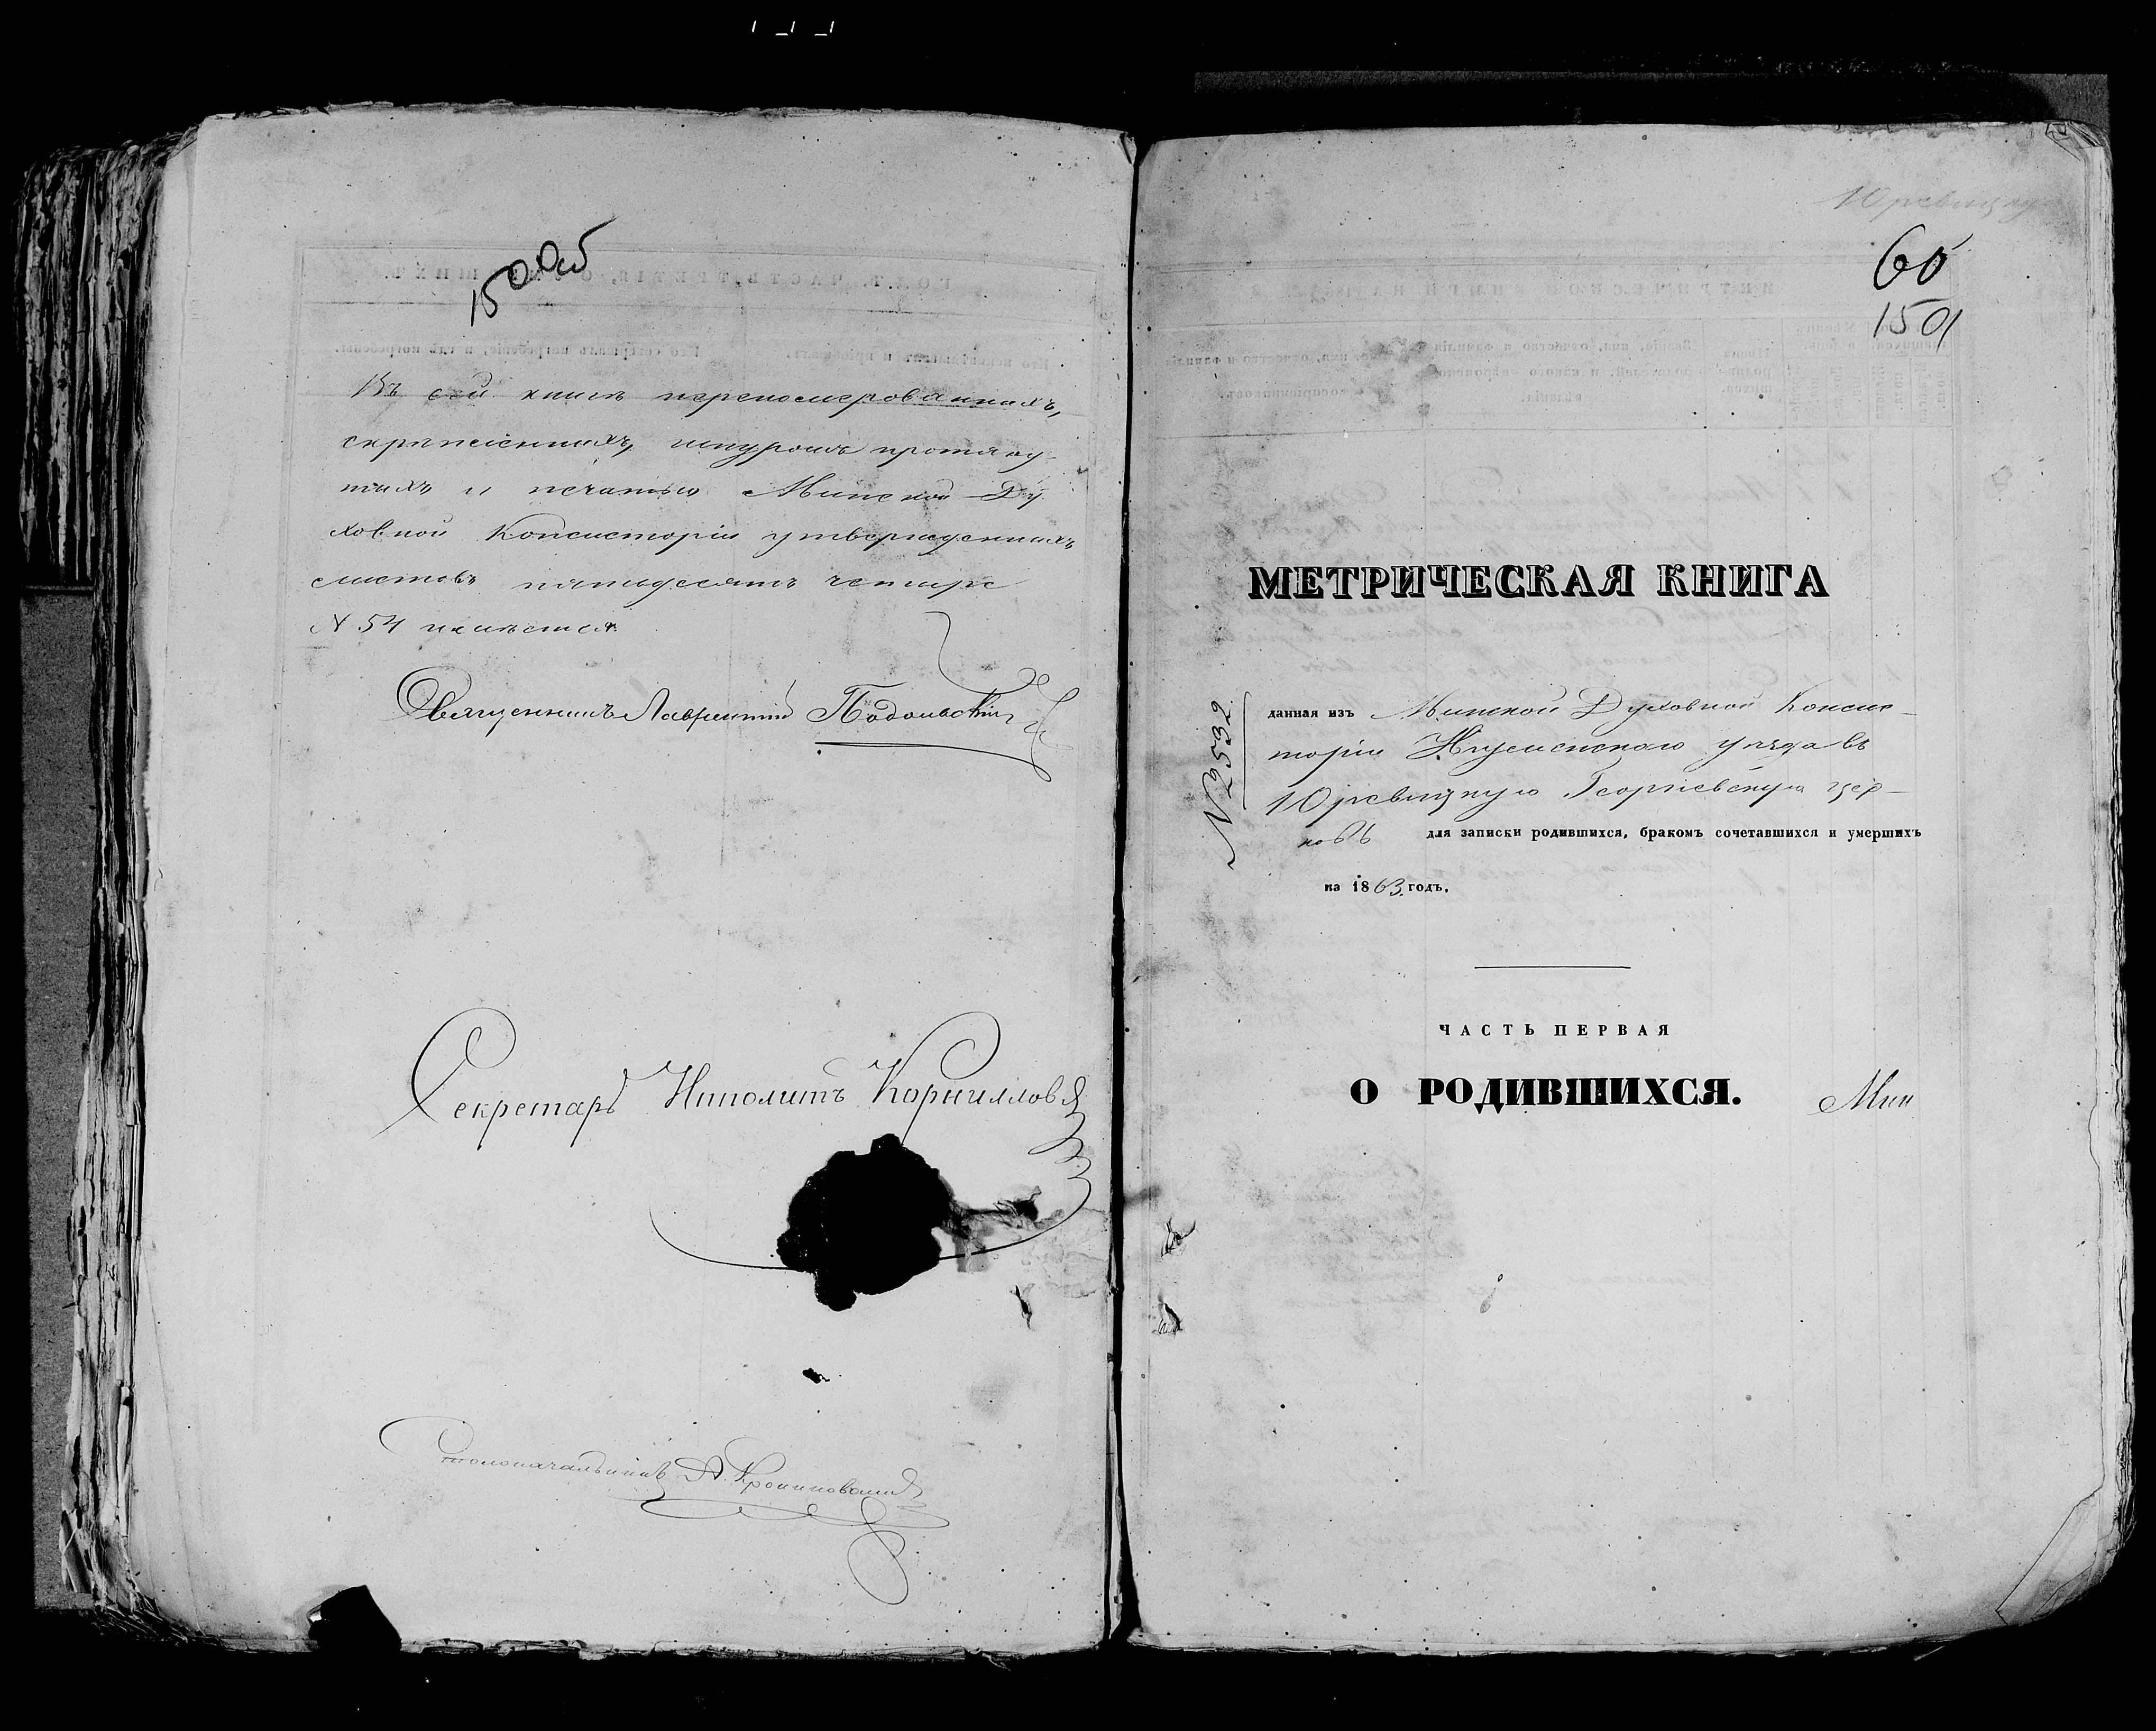 1500об
Въ сей книгѣ переномерованныхъ,
скрѣпленныхъ, шнуромъ протяну-
тыхъ и печатью Минской Ду
ховной Консисторіи утвержденныхъ
листовъ пятьдесятъ четыре
№ 54 имѣется.
Священникъ Лаврентій Подольскій
Секретарь Иполитъ Корниллов
Столоначальникъ А.
Юревицкую
60
1501
МЕТРИЧЕСКАЯ КНИГА
№ 2532
данная изъ Минской Духовной Консис-
торіи Игуменскаго уѣзда въ
Юревицкую Георгіевскую цер-
ковь для записки родившихся, бракомъ сочетавшихся и умершихъ
на 1863 годъ.
ЧАСТЬ ПЕРВАЯ
О РОДИВШИХСЯ.
Мин